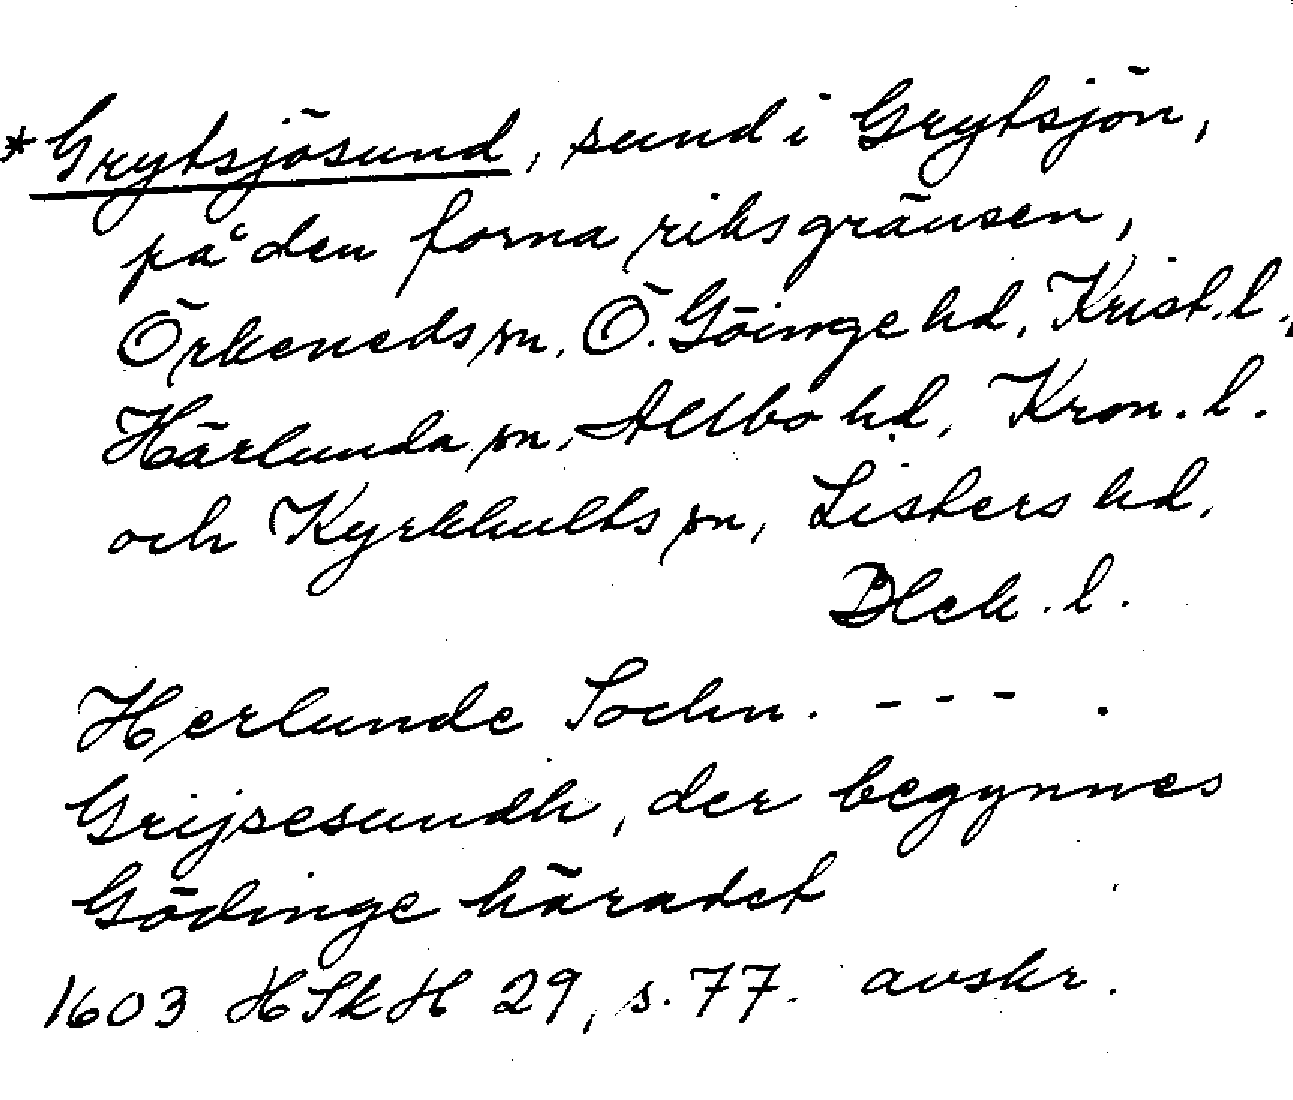 *Grytsjösund, sund i Grytsjön,
på den forna riksgränsen,
Örkeneds sn. Ö. Göinge hd, Krist. l.,
Härlunda sn, Allbo hd, Kron. l.
och Kyrkhults sn, Listers hd,
Blek. l.
Herlunde Sochn. - - - .
Grijsesundh, der begynnes
Gödinge häradet
1603 HSkH 29, s. 77. avskr.